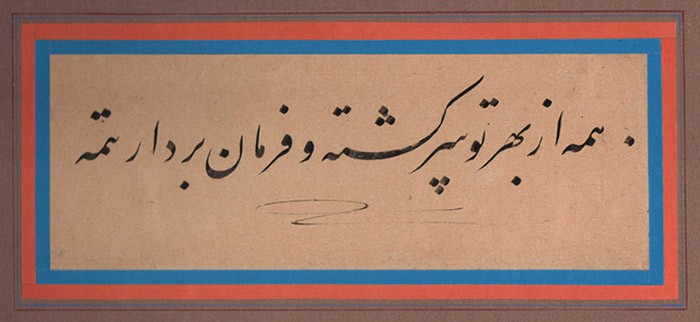 همه از بهر تو سرکشته و فرمان بردار تمه